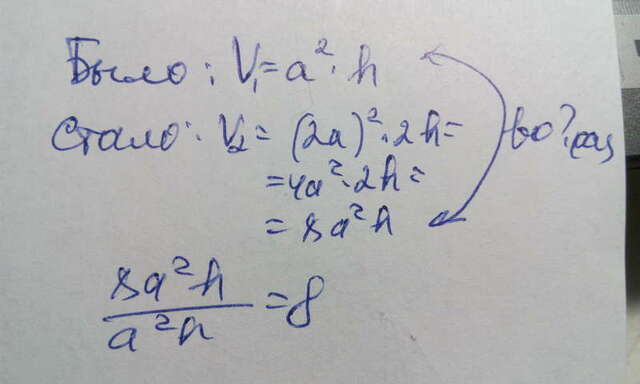 Было: V₁ = a² · h
Стало: V₂ = (2a)² · 2h =
= 4a² · 2h =
= 8a²h
во ? раз
8a²h / a²h = 8